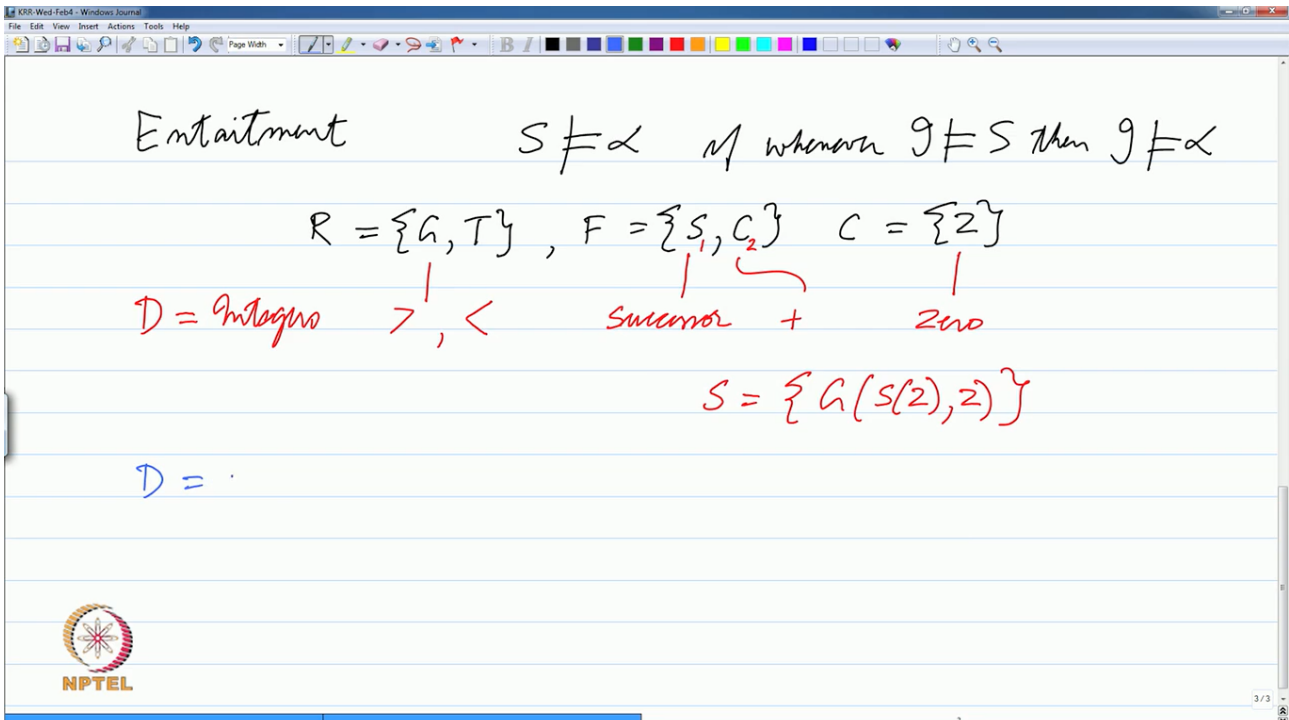 KRR-Wed-Feb4 - Windows Journal
File Edit View Insert Actions Tools Help
Page Width B I
Entaitment S ⊨ α if whenever I ⊨ S then I ⊨ α
R = {G, T} , F = {S₁, C₂} C = {Z}
D = Integers > , < successor + zero
S = {G(S(Z), Z)}
D =
NPTEL
3/3